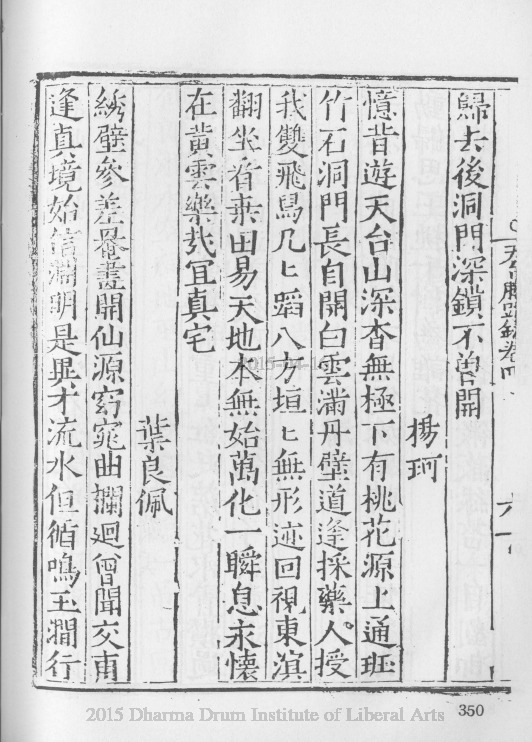 天台勝蹟錄卷四
歸去後洞門深鎖不曾開
楊珂
憶昔遊天台山深杳無極下有桃花源上通班
竹石洞門長自開白雲滿丹壁道逢採藥人授
我雙飛舄几匕蹈八方垣匕無形迹回視東溟
翻坐看桒田易天地本無始萬化一瞬息永懷
在黃雲樂哉宜真宅
葉良佩
綉壁參差罨畫開仙源窈窕曲攔迴曾聞交甫
逢真境始信淵明是異才流水但循鳴玉澗行
350
2015 Dharma Drum Institute of Liberal Arts